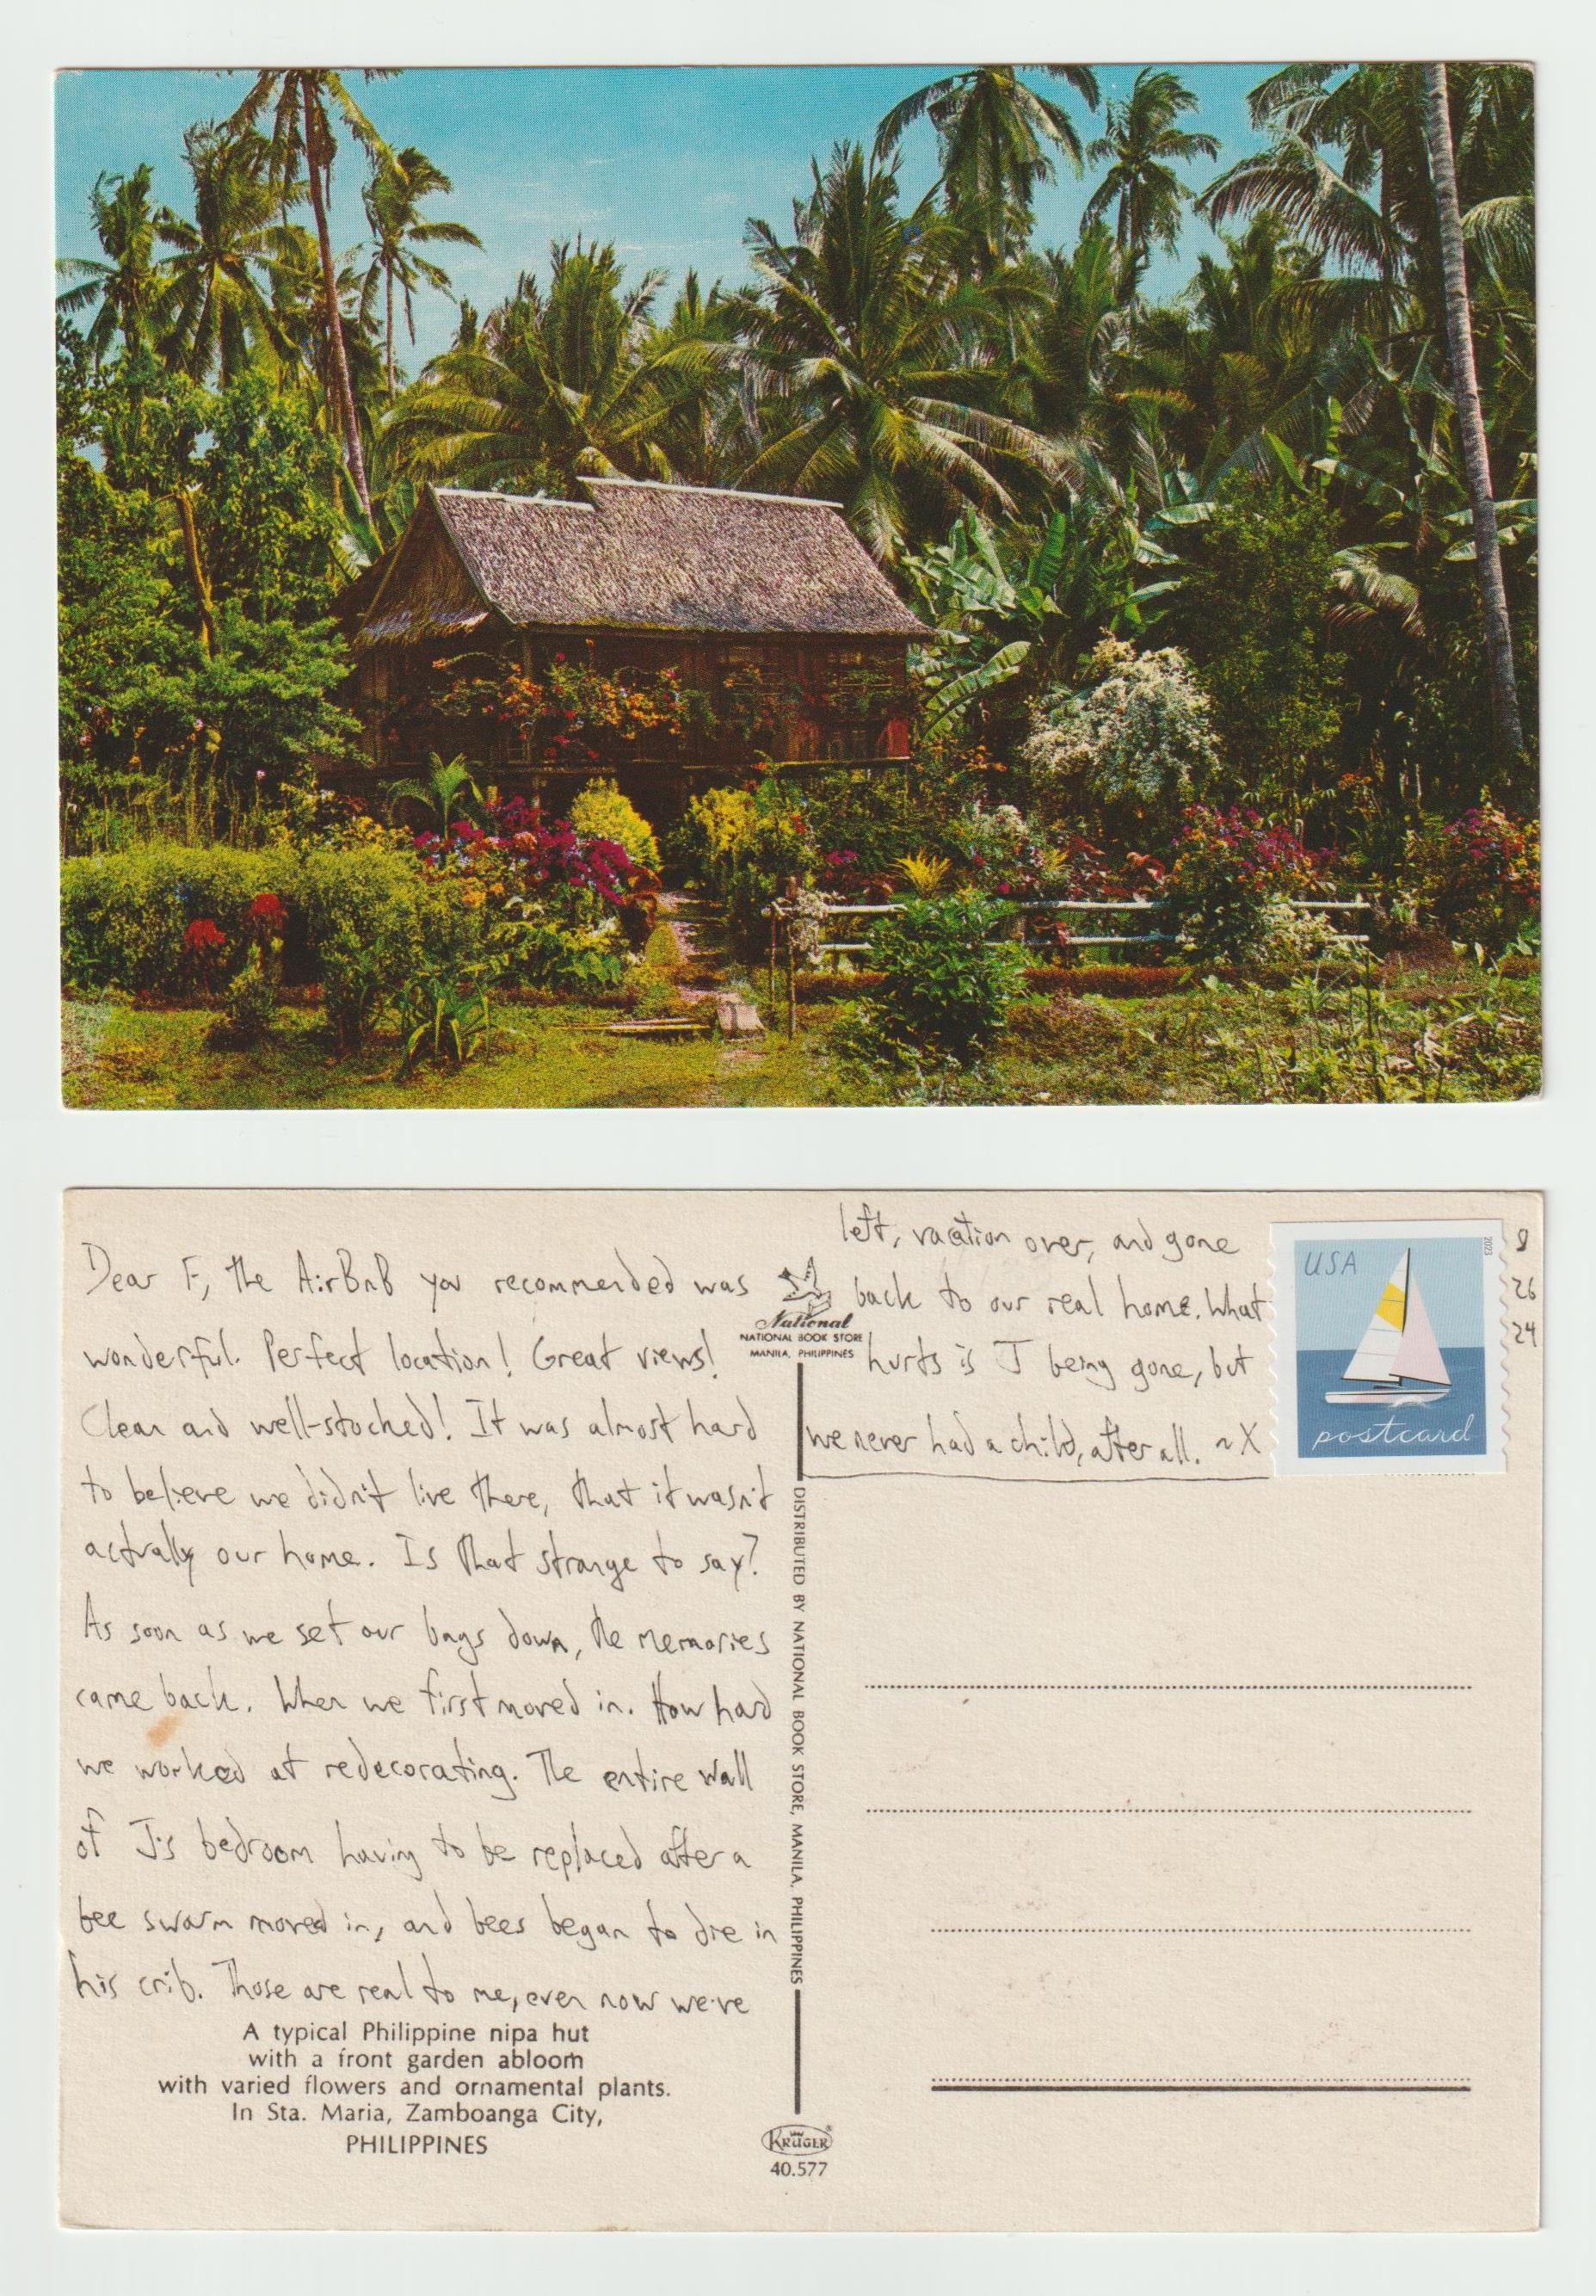 Dear F, the AirBnB you recommended was
wonderful. Perfect location! Great views!
Clean and well-stocked! It was almost hard
to believe we didn't live there, that it wasn't
actually our home. Is that strange to say?
As soon as we set our bags down, the memories
came back. When we first moved in. How hard
we worked at redecorating. The entire wall
of J's bedroom having to be replaced after a
bee swarm moved in, and bees began to die in
his crib. Those are real to me, even now we've
left, vacation over, and gone
back to our real home. What
hurts is J being gone, but
we never had a child, after all. ~X
A typical Philippine nipa hut
with a front garden abloom
with varied flowers and ornamental plants.
In Sta. Maria, Zamboanga City,
PHILIPPINES
National
NATIONAL BOOK STORE
MANILA, PHILIPPINES
DISTRIBUTED BY NATIONAL BOOK STORE, MANILA, PHILIPPINES
KRÜGER
40.577
USA
2023
postcard
8
26
24